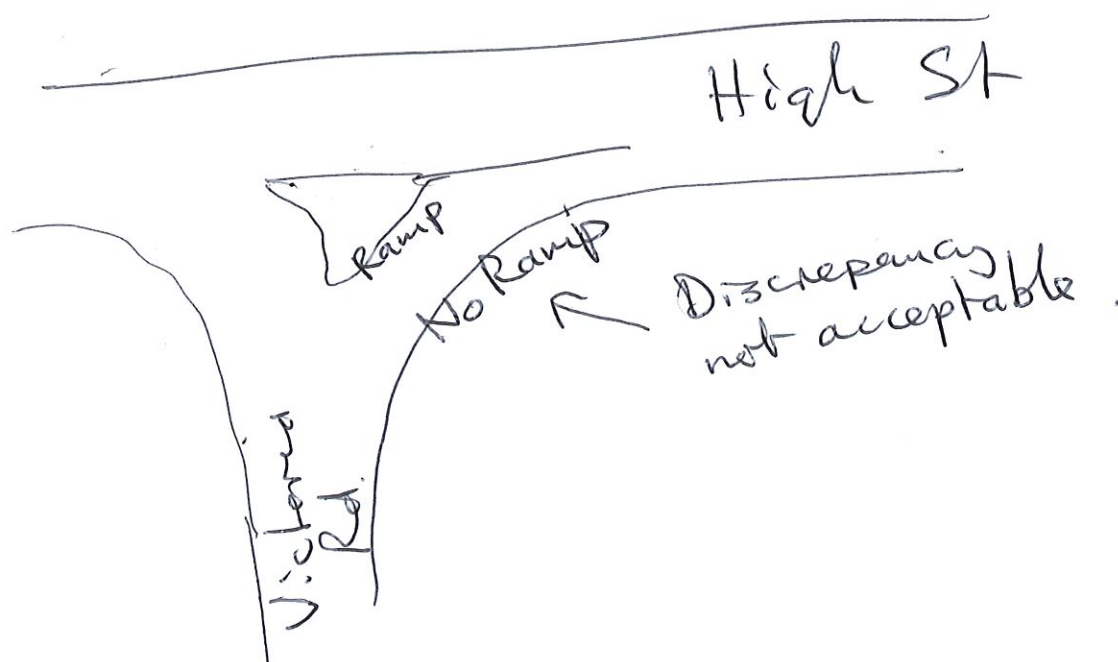 High St
Ramp
No Ramp
Discrepancy
not acceptable.
Victoria
Rd.